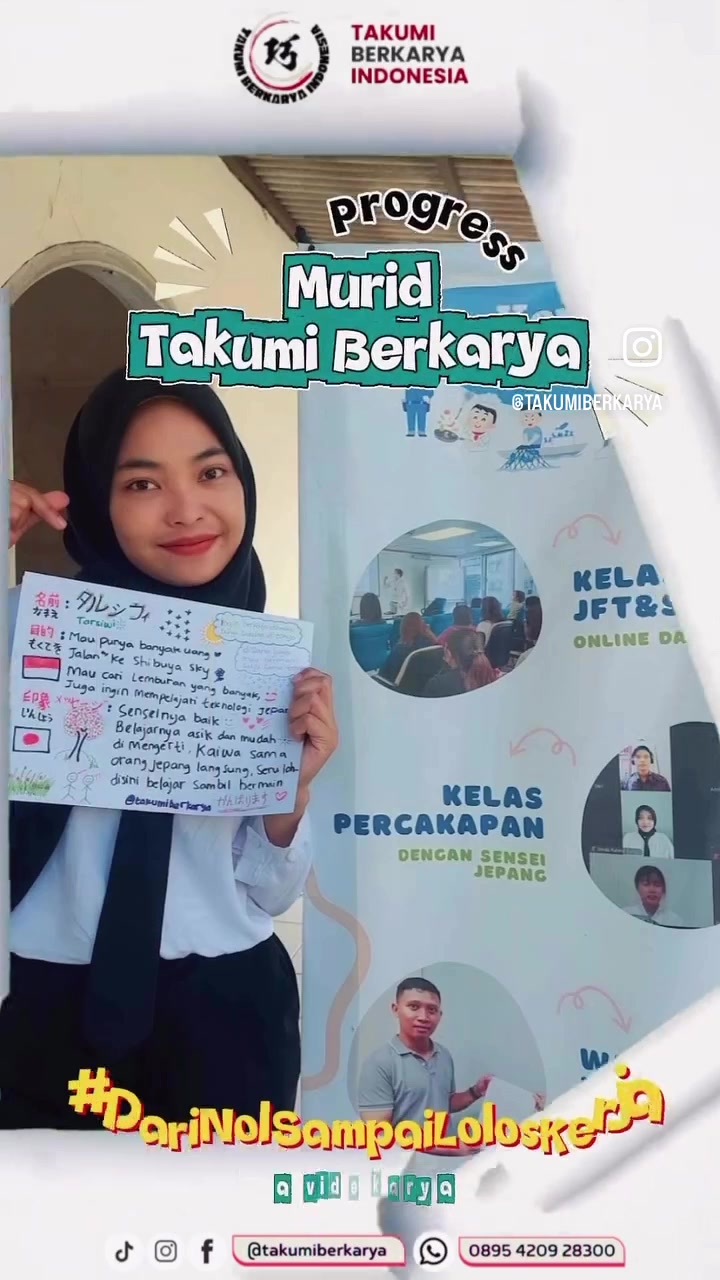 TAKUMI BERKARYA INDONESIA
TAKUMI
BERKARYA
INDONESIA
Progress
Murid
Takumi Berkarya
@TAKUMIBERKARYA
名前
なまえ
: タルシウィ
Tarsiwi
目的
もくてき
: Mau punya banyak uang
Jalan" ke Shibuya Sky
Mau cari lemburan yang banyak,
Juga ingin mempelajari teknologi Jepan
印象
いんしょう
: Senseinya baik
Belajarnya asik dan mudah
di mengerti. Kaiwa sama
orang Jepang langsung. Seru loh
disini belajar sambil bermain
@takumiberkarya がんばります
KELA
JFT&S
ONLINE DA
KELAS
PERCAKAPAN
DENGAN SENSEI
JEPANG
W
#DariNolSampaiLolosKerja
@takumiberkarya
0895 4209 28300